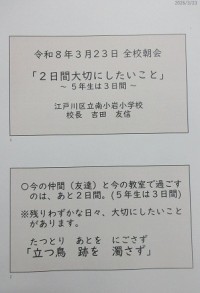 2026/3/23
令和８年３月２３日 全校朝会
「２日間大切にしたいこと」
～ ５年生は３日間 ～
江戸川区立南小岩小学校
校長 吉田 友信
○今の仲間（友達）と今の教室で過ごす
のは、あと２日間。(５年生は３日間)
※残りわずかな日々、大切にしたいこと
があります。
たつとり あとを にごさず
「立つ鳥 跡を 濁さず」